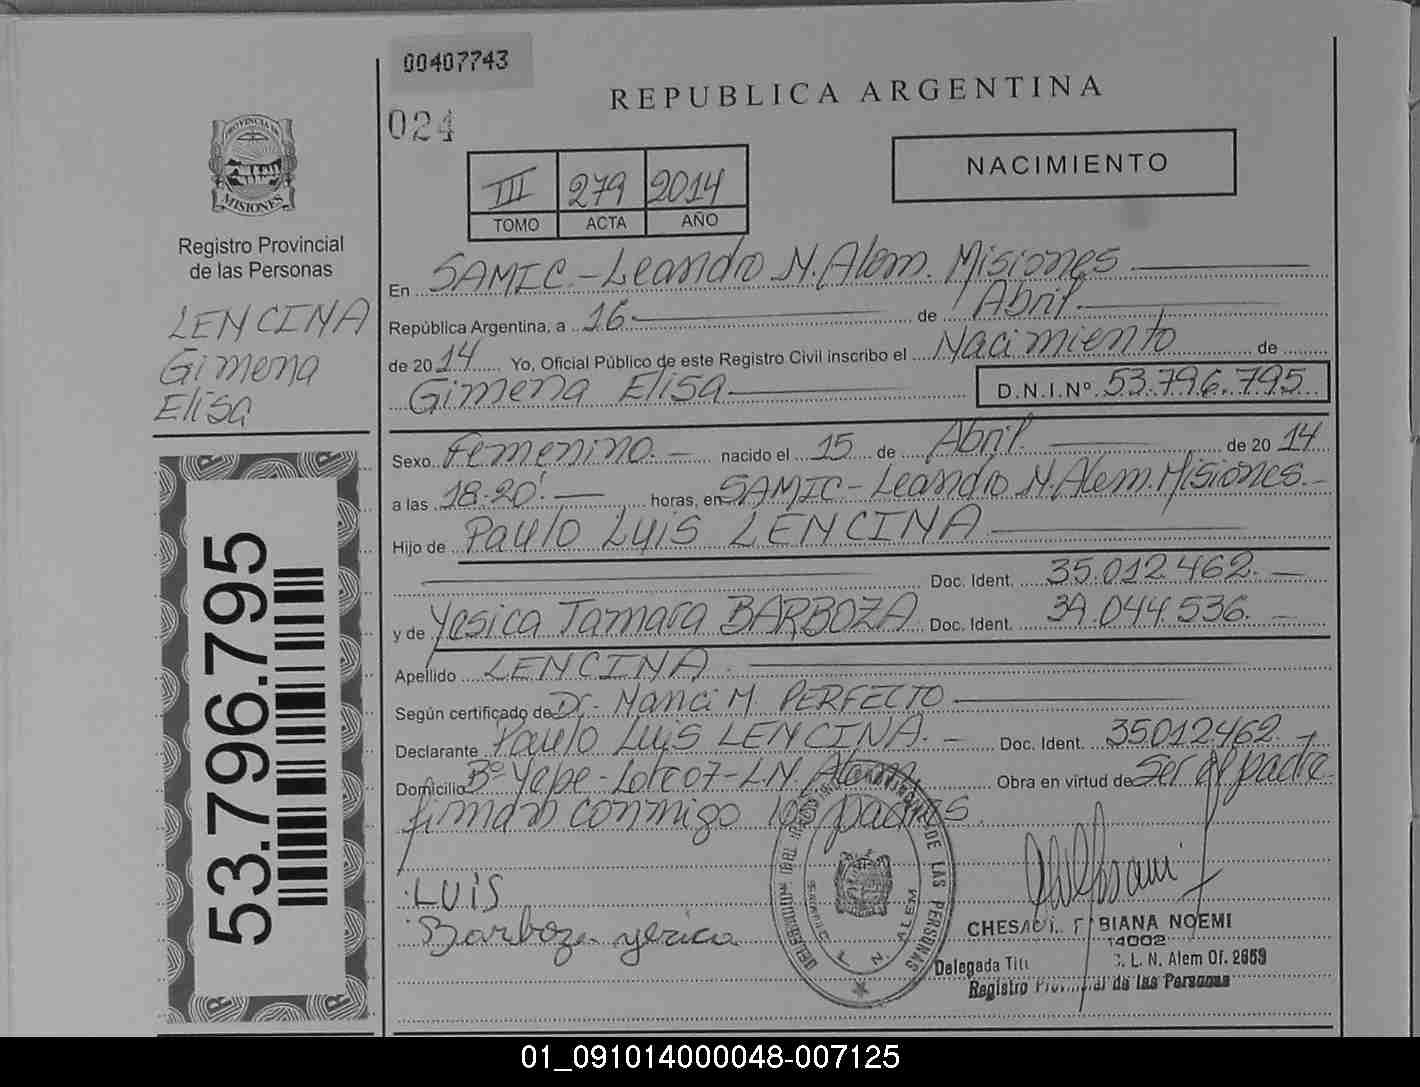 00407743
024
REPUBLICA ARGENTINA
NACIMIENTO
III 279 2014
TOMO ACTA AÑO
PROVINCIA DE
MISIONES
Registro Provincial
de las Personas
LENCINA
Gimena
Elisa
53.796.795
En SAMIC - Leandro N. Alem. Misiones
República Argentina, a 16 de Abril
de 2014 Yo, Oficial Público de este Registro Civil inscribo el Nacimiento de
Gimena Elisa D.N.I.Nº 53.796.795
Sexo Femenino. nacido el 15 de Abril de 2014
a las 18.20' horas, en SAMIC - Leandro N. Alem. Misiones.
Hijo de Paulo Luis LENCINA
Doc. Ident. 35.012.462.
y de Yesica Tamara BARBOZA Doc. Ident. 39.044.536.
Apellido LENCINA
Según certificado de Dr. Nanci M. PERFECTO
Declarante Paulo Luis LENCINA. Doc. Ident. 35012462
Domicilio Bº Yepe - Lote 07 - L.N. Alem Obra en virtud de Ser el padre
firman conmigo los padres.
LUIS
Barboza yesica
DE LAS PERSONAS
L. N. ALEM
CHESANI FABIANA NOEMI
14002
Delegada Tit L. N. Alem Of. 2659
Registro Provincial de las Personas
01_091014000048-007125